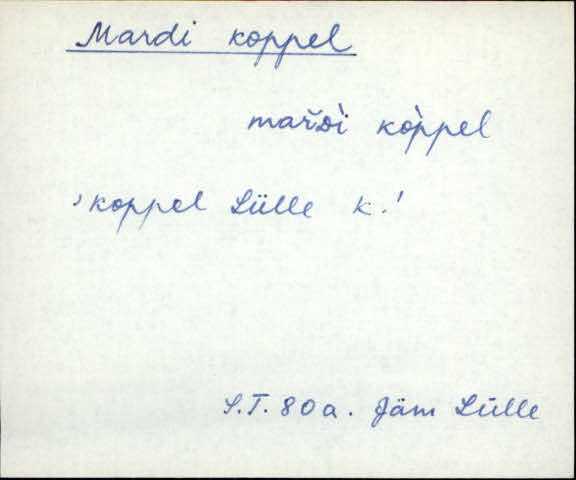 Mardi koppel
marᴅ̀i kòppel
'koppel Lülle k.'
S.T. 80 a. Jäm Lülle